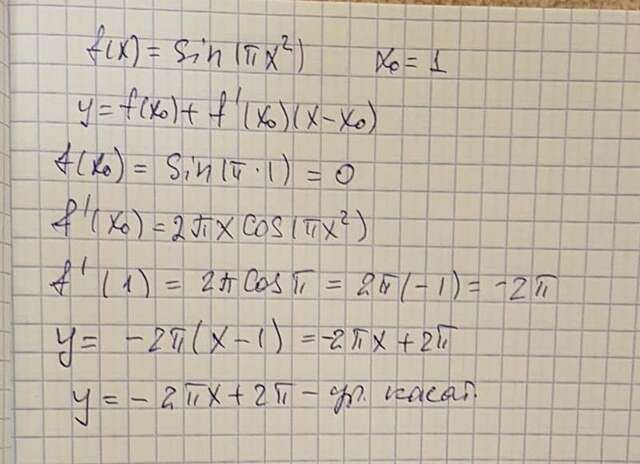 f(x) = sin(πx²) x₀ = 1
y = f(x₀) + f'(x₀)(x - x₀)
f(x₀) = sin(π · 1) = 0
f'(x₀) = 2πx cos(πx²)
f'(1) = 2π cos π = 2π(-1) = -2π
y = -2π(x - 1) = -2πx + 2π
y = -2πx + 2π - ур. касат.